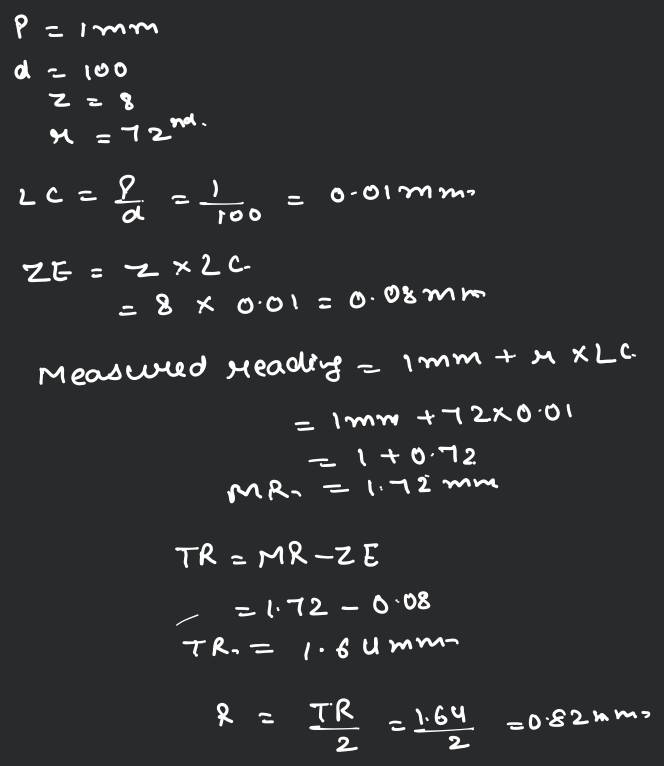 P = 1mm
d = 100
z = 8
n = 72nd.
LC = P/d = 1/100 = 0.01mm.
ZE = z × LC.
= 8 × 0.01 = 0.08mm
Measured reading = 1mm + n × LC.
= 1mm + 72×0.01
= 1 + 0.72
MR. = 1.72 mm
TR = MR - ZE
= 1.72 - 0.08
TR. = 1.64mm
R = TR/2 = 1.64/2 = 0.82mm.